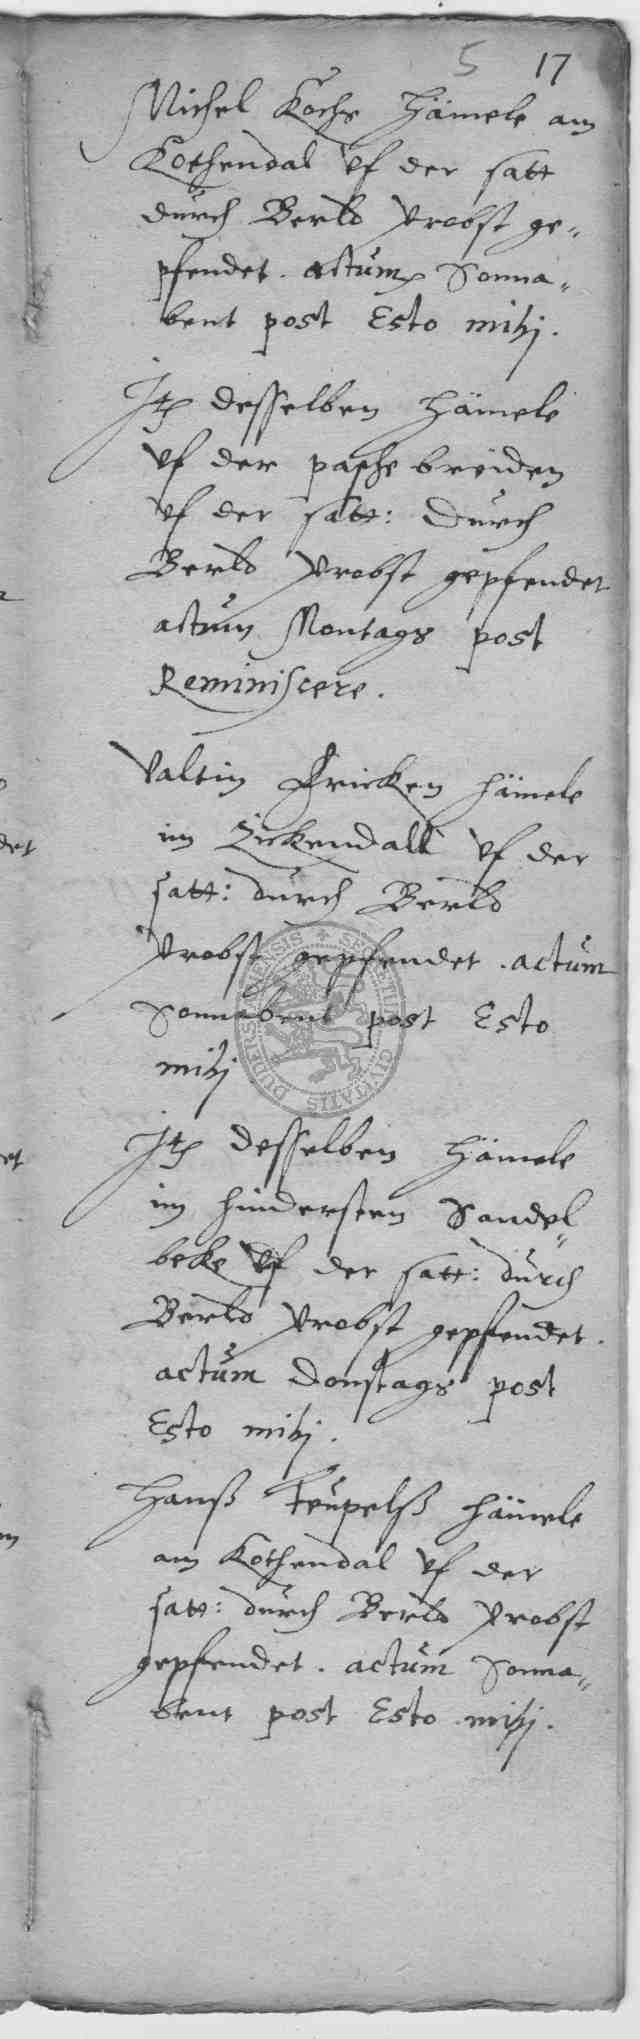 5 17
Michel Kochs hämele am
Kothendal vf der satt
durch Berld Probst ge-
pfendet. actum Sonna-
bent post Esto mihj.
Jtem desselben hämele
vf der pasche breiden
vf der satt: durch
Berld Probst gepfendet
actum Montags post
Reminiscere.
Valtin Fricken hämele
im Zickendall vf der
satt: durch Berld
Probst gepfendet. actum
Sonnabent post Esto
mihj
Jtem desselben hämele
im hindersten Sandel-
beke vf der satt: durch
Berld Probst gepfendet.
actum Donstags post
Esto mihj.
Hanß Teupelß hämele
am Kothendal vf der
satt: durch Berld Probst
gepfendet. actum Sonna-
bent post Esto mihj.
CIVITATIS DUDERS